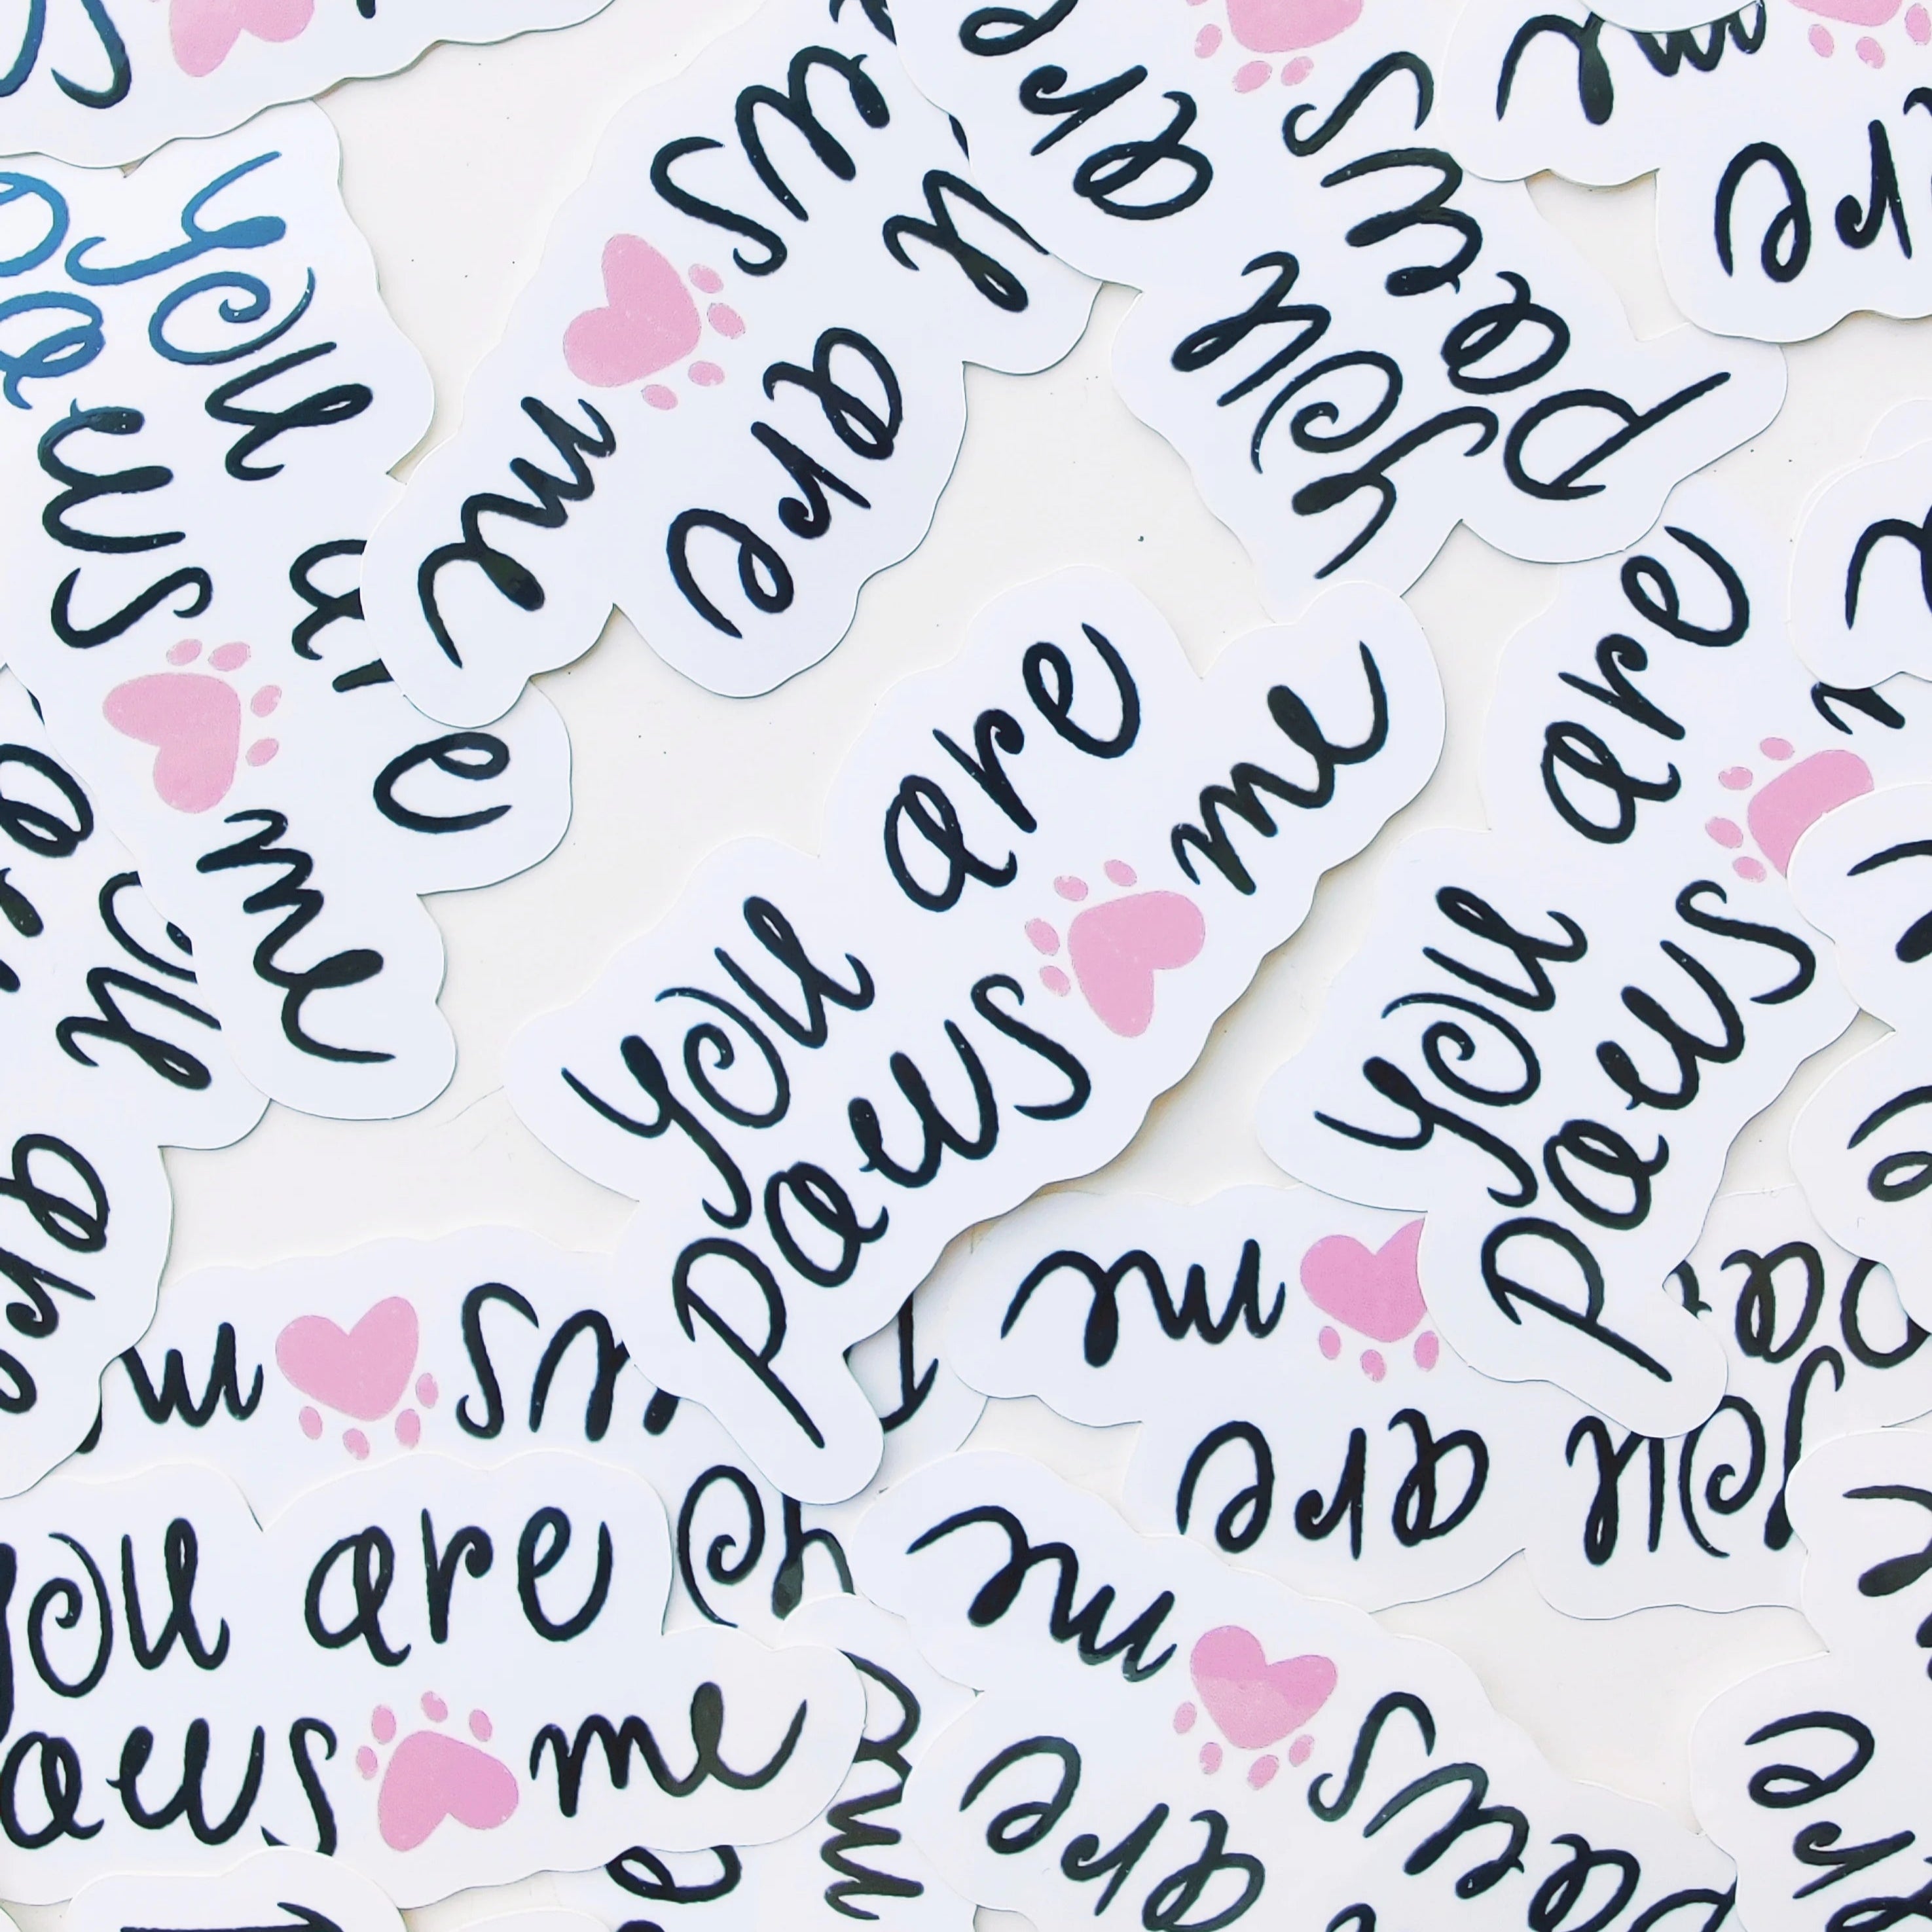 you are
paws me
me paws
are
you are
paws me
you
paws me
are
you
paws
you are
paws
me
are you
me paws
you are
aws me
me paws
are